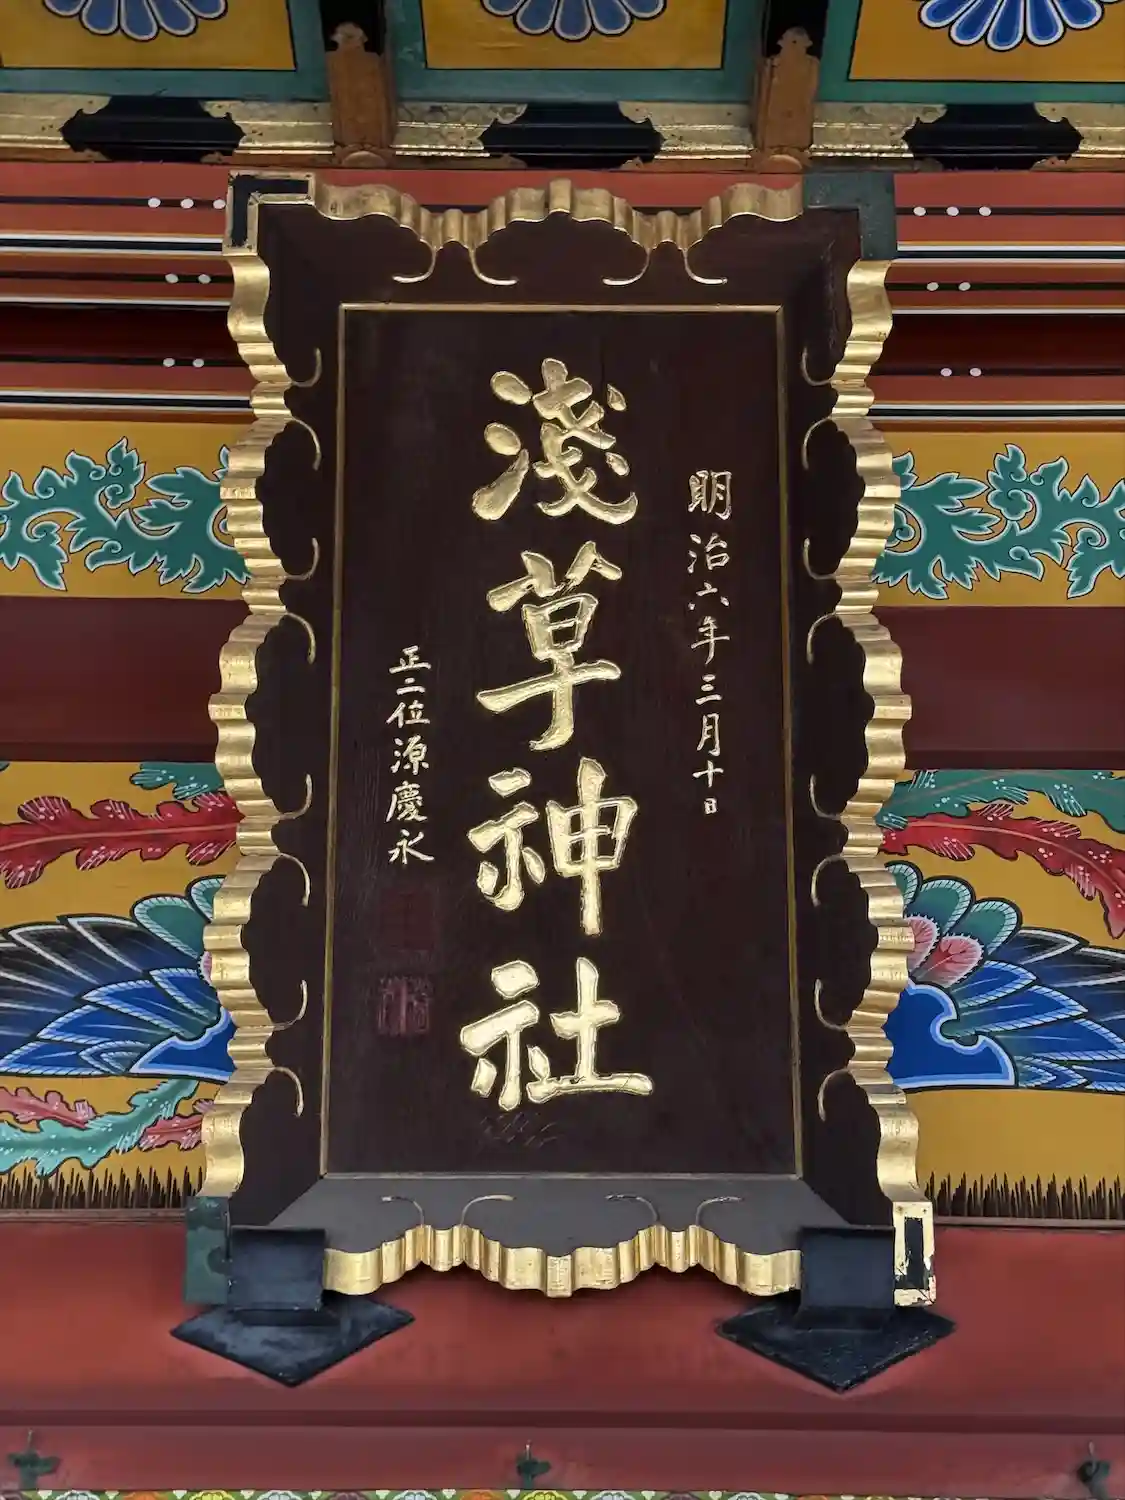 明治六年三月十日
淺草神社
正二位源慶永